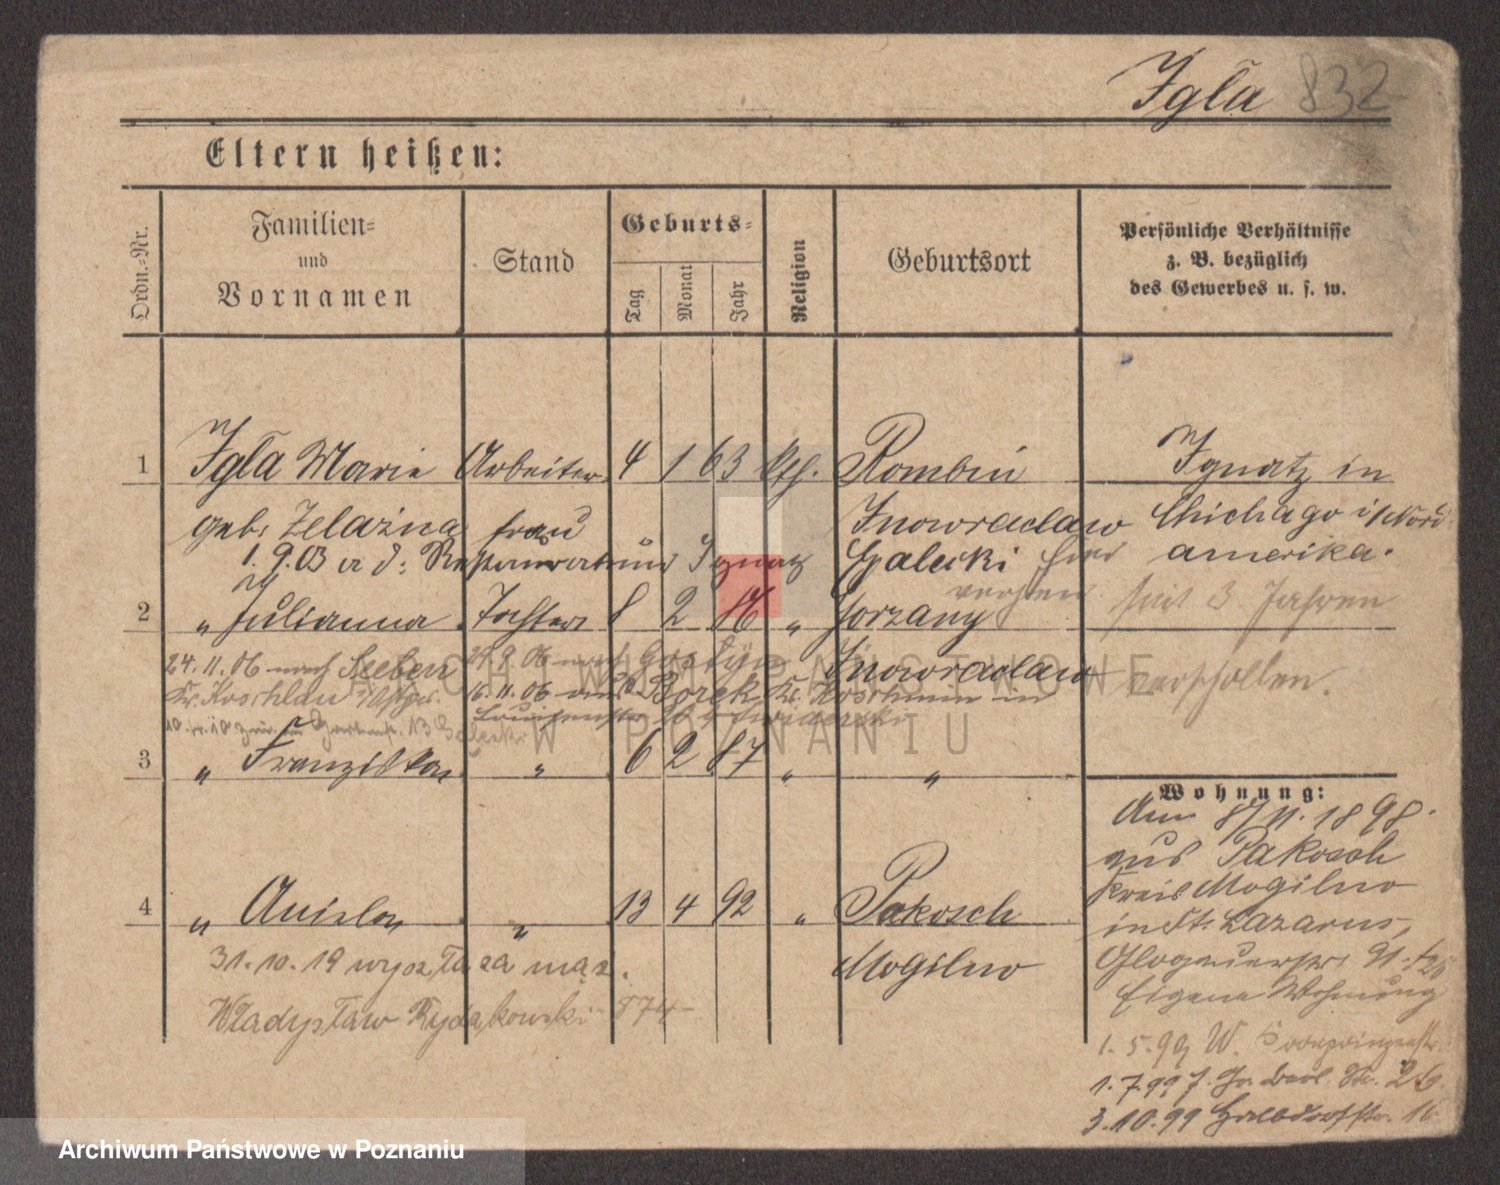 Igla 832
Eltern heißen:
Ordn.-Nr.
Familien-
und
Vornamen
Stand
Geburts-
Tag
Monat
Jahr
Religion
Geburtsort
Persönliche Verhältnisse
z. B. bezüglich
des Gewerbes u. s. w.
1 Igla Marie Arbeiter 4 1 63 kth. Rombin Ignatz in
geb. Zelazna frau Inowraclaw Chichago i/Nord
1. 9. 03 Ignatz Galecki amerika.
2 " Julianna Tochter 8 2 86 " Gorzany seit 3 Jahren
24. 11. 06 nach 29. 9. 06 nach Gostyn Inowraclaw verschollen.
16. 11. 06 Borek Kr. Koschmin
3 " Franziska " 6 2 87 " "
Wohnung:
Am 8/11. 1898.
aus Pakosch
Kreis Mogilno
4 " Aniela " 13 4 92 " Pakosch in St. Lazarus,
31. 10. 19 wyszła za mąż. Mogilno Glogauerstr. 91.
Eigene Wohnung
Władysław Rydzkowski 874
1. 5. 99 W. Kronprinzenstr.
1. 7. 99 26.
3. 10. 99 16
ARCHIWUM PAŃSTWOWE
W POZNANIU
Archiwum Państwowe w Poznaniu